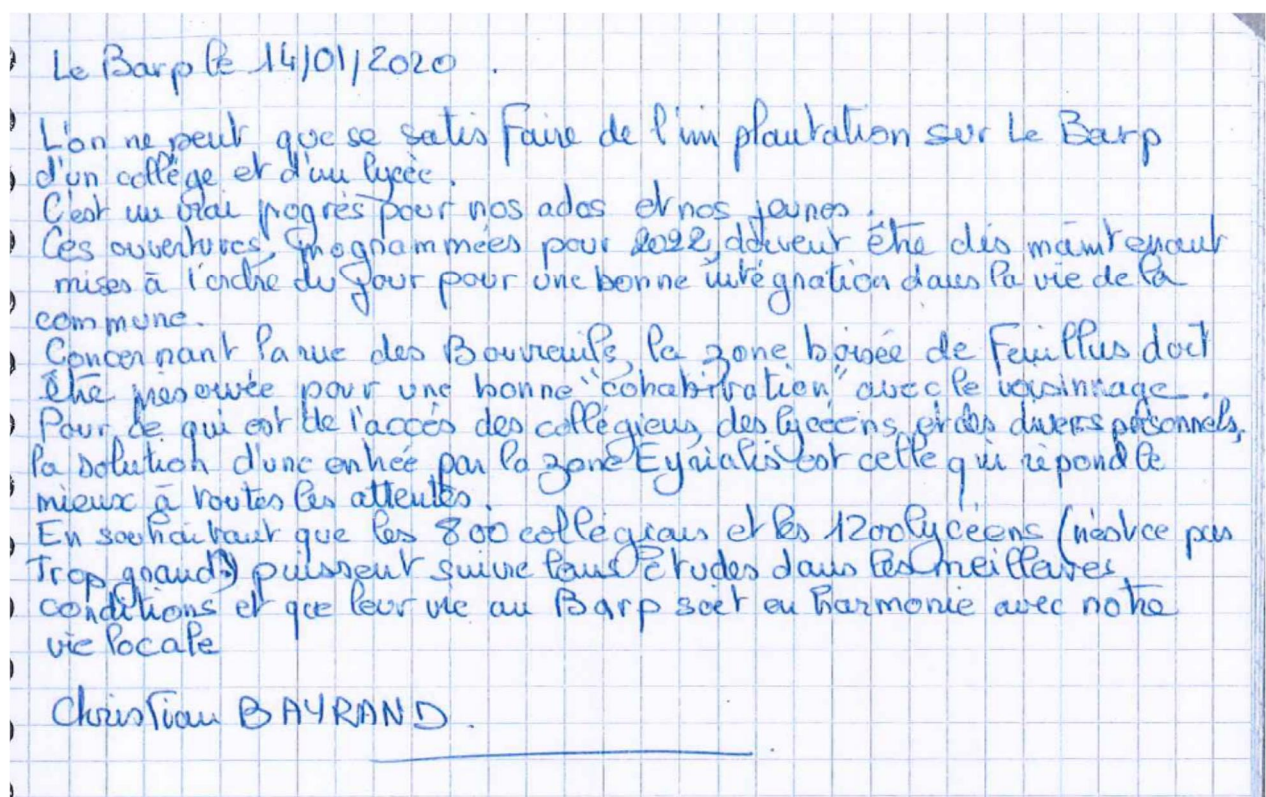 Le Barp le 14/01/2020.
L'on ne peut que se satisfaire de l'implantation sur Le Barp
d'un collège et d'un lycée.
C'est un vrai progrès pour nos ados et nos jeunes.
Ces ouvertures, programmées pour 2022, doivent être dès maintenant
mises à l'ordre du jour pour une bonne intégration dans la vie de la
commune.
Concernant la rue des Bouvreuils, la zone boisée de Feuillus doit
être préservée pour une bonne "cohabitation" avec le voisinnage.
Pour ce qui est de l'accès des collégiens, des lycéens, et des divers personnels,
la solution d'une entrée par la zone Eyrialis est celle qui répond le
mieux à toutes les attentes.
En souhaitant que les 800 collégiens et les 1200 lycéens (n'est ce pas
Trop grand?) puissent suivre leurs études dans les meilleures
conditions et que leur vie au Barp soit en harmonie avec notre
vie locale
Christian BAYRAND.